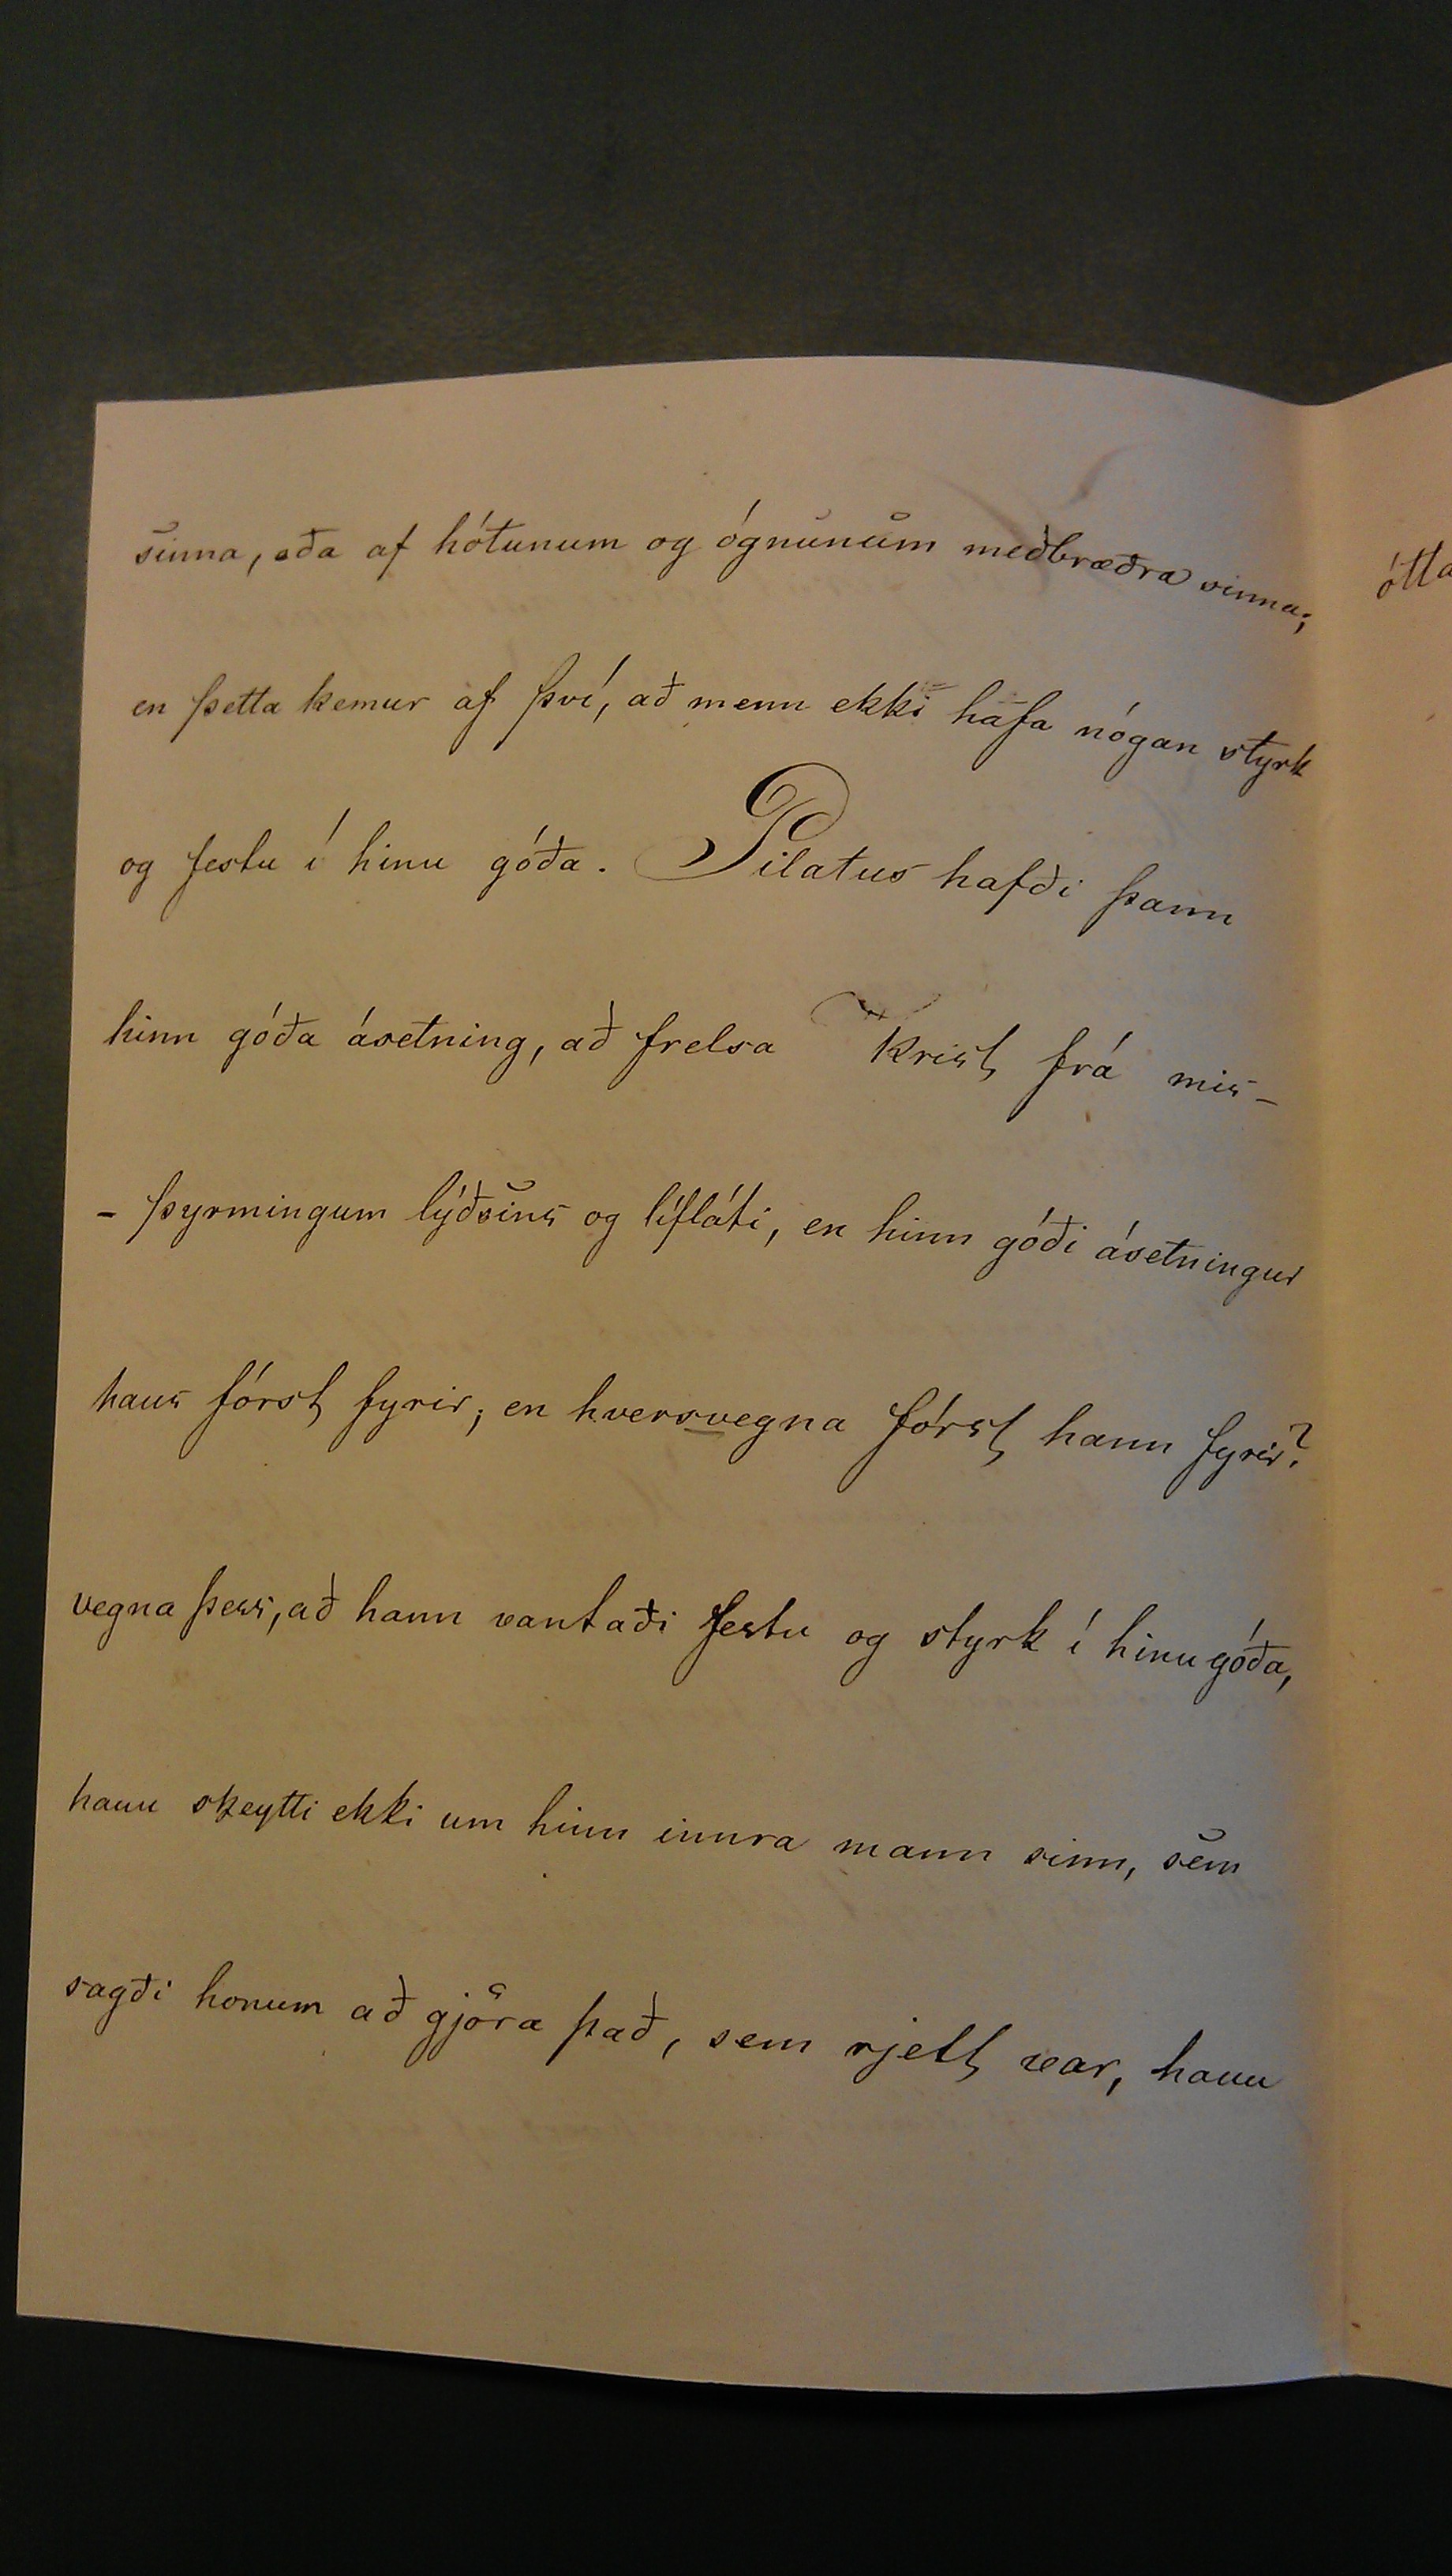 sinna, eða af hótunum og ógnunum meðbræðra sinna;
en þetta kemur af því, að menn ekki hafa nógan styrk
og festu í hinu góða. Pilatus hafði þann
hinn góða ásetning, að frelsa Krist frá mis-
- þyrmingum lýðsins og lífláti, en hinn góði ásetningur
hans fórst fyrir; en hversvegna fórst hann fyrir?
vegna þess, að hann vantaði festu og styrk í hinu góða,
hann skeytti ekki um hinn innra mann sinn, sem
sagði honum að gjöra það, sem rjett var, hann
ótta